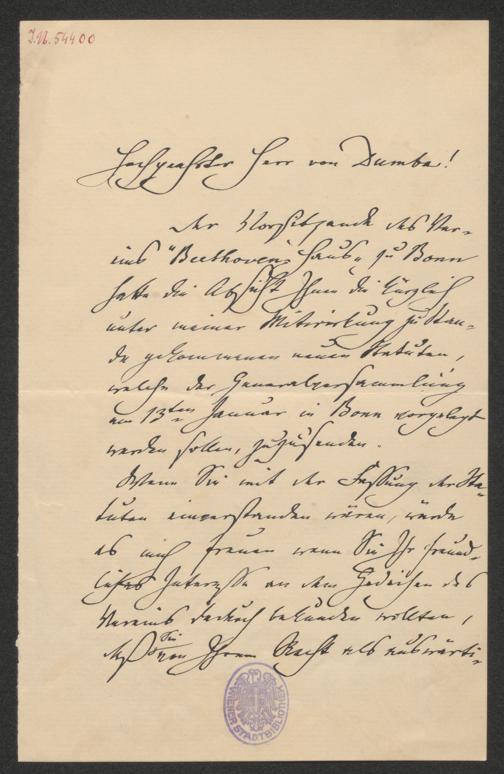 J.N. 54400
Hochgeehrter Herr von Dumba!
Der Vorsitzende des Ver-
eins "Beethoven-Haus" zu Bonn
hatte die Absicht Ihnen die kürzlich
unter meiner Mitwirkung zu Stan-
de gekommenen neuen Statuten,
welche der Generalversammlung
am 13ten Januar in Bonn vorgelegt
werden sollen, zuzusenden.
Wenn Sie mit der Fassung der Sta-
tuten einverstanden wären, würde
es mich freuen wenn Sie Ihr freund-
liches Interesse an dem Gedeihen des
Vereins dadurch bekunden wollten,
daß Sie von Ihrem Recht als auswärti-
WIENER STADTBIBLIOTHEK